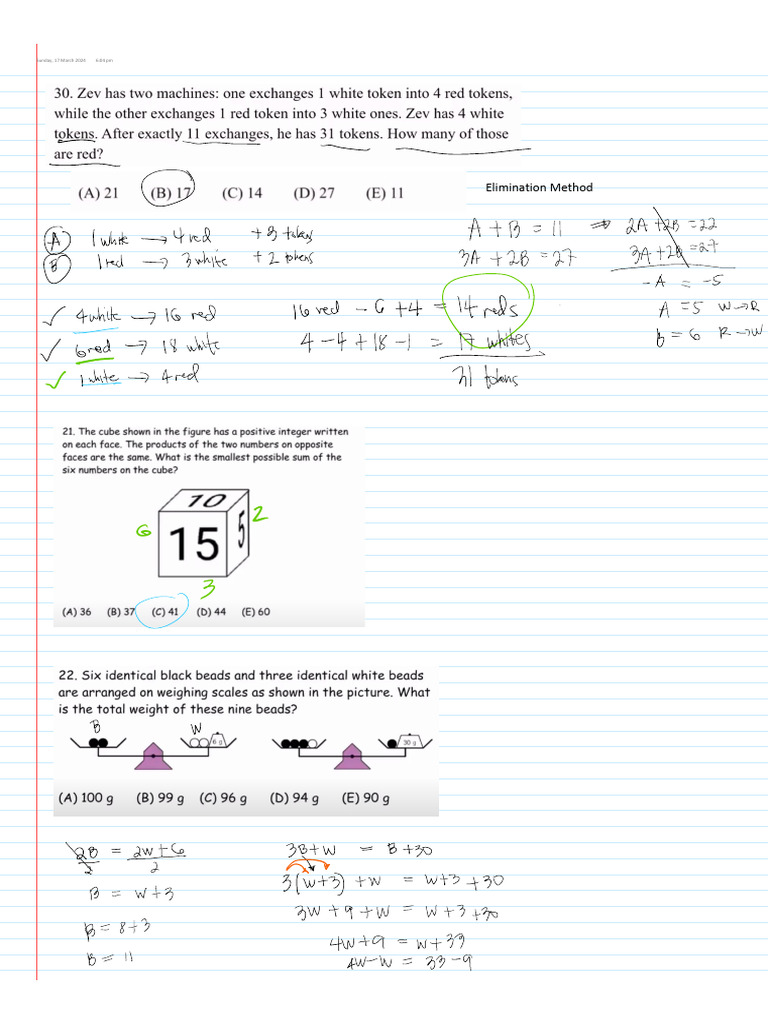 Sunday, 17 March 2024 6:04 pm
30. Zev has two machines: one exchanges 1 white token into 4 red tokens,
while the other exchanges 1 red token into 3 white ones. Zev has 4 white
tokens. After exactly 11 exchanges, he has 31 tokens. How many of those
are red?
(A) 21 (B) 17 (C) 14 (D) 27 (E) 11
Elimination Method
A 1 white → 4 red +3 tokens
B 1 red → 3 white +2 tokens
A + B = 11 ⇒ 2A + 2B = 22
3A + 2B = 27 3A + 2B = 27
-A = -5
A = 5 W→R
B = 6 R→W
4 white → 16 red
6 red → 18 white
1 white → 4 red
16 red - 6 + 4 = 14 reds
4 - 4 + 18 - 1 = 17 whites
31 tokens
21. The cube shown in the figure has a positive integer written
on each face. The products of the two numbers on opposite
faces are the same. What is the smallest possible sum of the
six numbers on the cube?
10
6 15 5 2
3
(A) 36 (B) 37 (C) 41 (D) 44 (E) 60
22. Six identical black beads and three identical white beads
are arranged on weighing scales as shown in the picture. What
is the total weight of these nine beads?
B W
6 g 30 g
(A) 100 g (B) 99 g (C) 96 g (D) 94 g (E) 90 g
2B = 2W + 6
2 2
B = W + 3
B = 8 + 3
B = 11
3B + W = B + 30
3(W+3) + W = W + 3 + 30
3W + 9 + W = W + 3 + 30
4W + 9 = W + 33
4W - W = 33 - 9